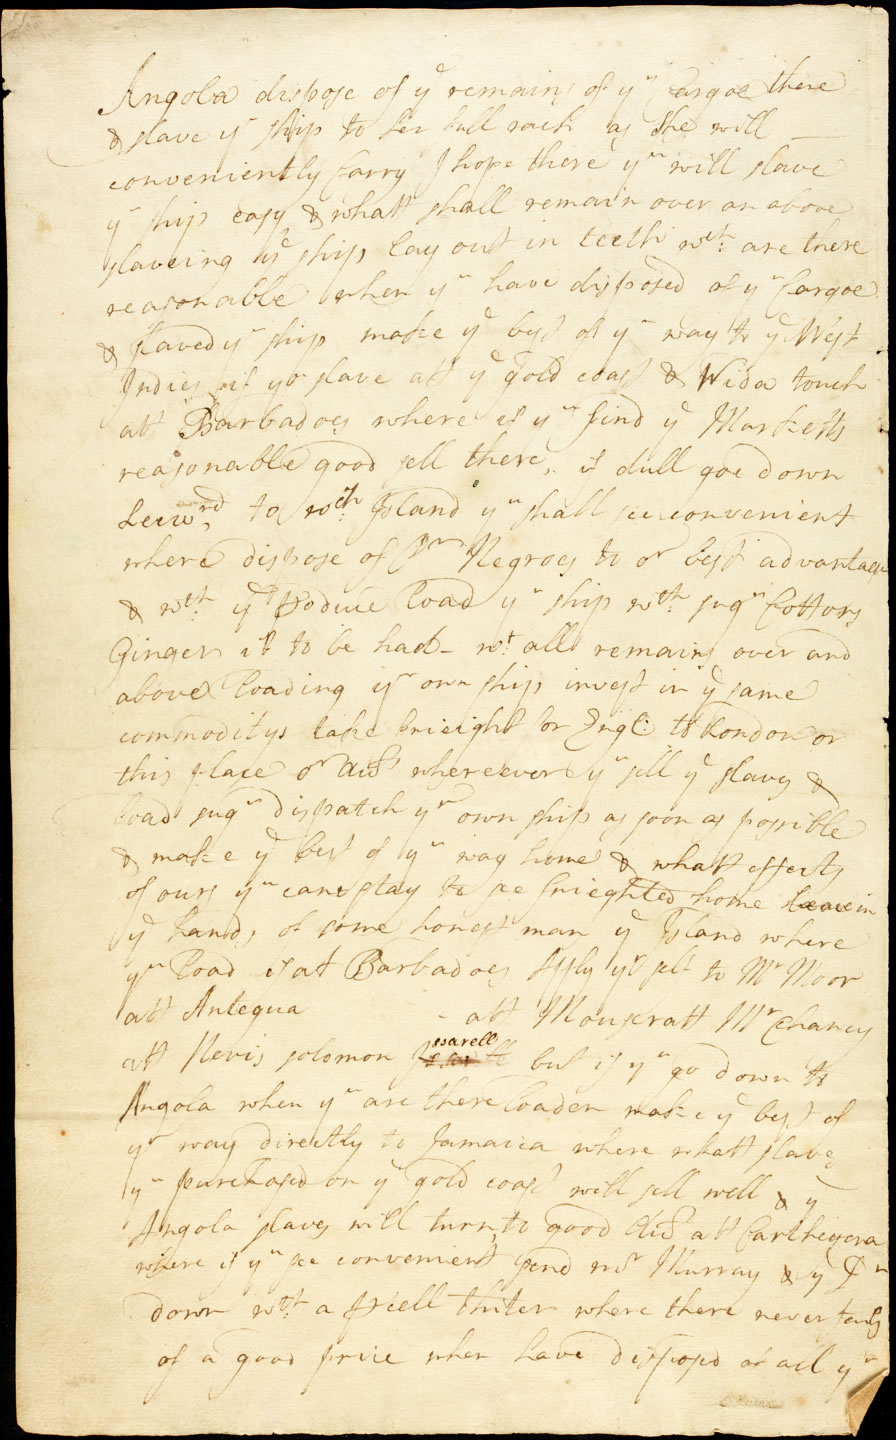 Angola dispose of ye remains of yr Cargoe there
& slave yr ship to her full as she will
conveniently Carry I hope there yu will slave
yr ship easy & whatt shall remain over an above
slaveing ye ship lay out in teeth wch: are there
reasonable when yu have disposed of yr Cargoe
& slaved yr ship make ye best of yr way to ye West
Indies if yo slave att ye gold coast & Wida touch
att Barbadoes where if yu find ye Marketts
reasonable good sell there, if dull goe down
Leewrd, to wch: Island yu shall see convenient
where dispose of Negroes to or best advantage
& wth ye Produce load yr ship wth: sugr Cottons
Ginger if to be had - wt all remains over and
above loading yr own ship invest in ye same
commoditys take frieight for Engl: to London or
this place or whereever yu sell ye slaves &
load sugr dispatch yr own ship as soon as possible
& make ye best of yr way home & whatt effects
of ours yu cant stay to see frieghted home leave in
ye hands of some honest man ye Island where
yu load if at Barbadoes Apply yr self to Mr Moor
att Antegua - att Mounseratt Mr Chancy
att Nevis solomon but if yu go down to
Angola when yu are there loaden make ye best of
yr way directly to Jamaica where whatt slaves
yu purchased on ye gold coast will sell well & ye
Angola slaves will turn to good att Carthegena
where if yu see convenient send mr Murray & ye
down wth: a thiter where there never fails
of a good price when have disposed of all yr